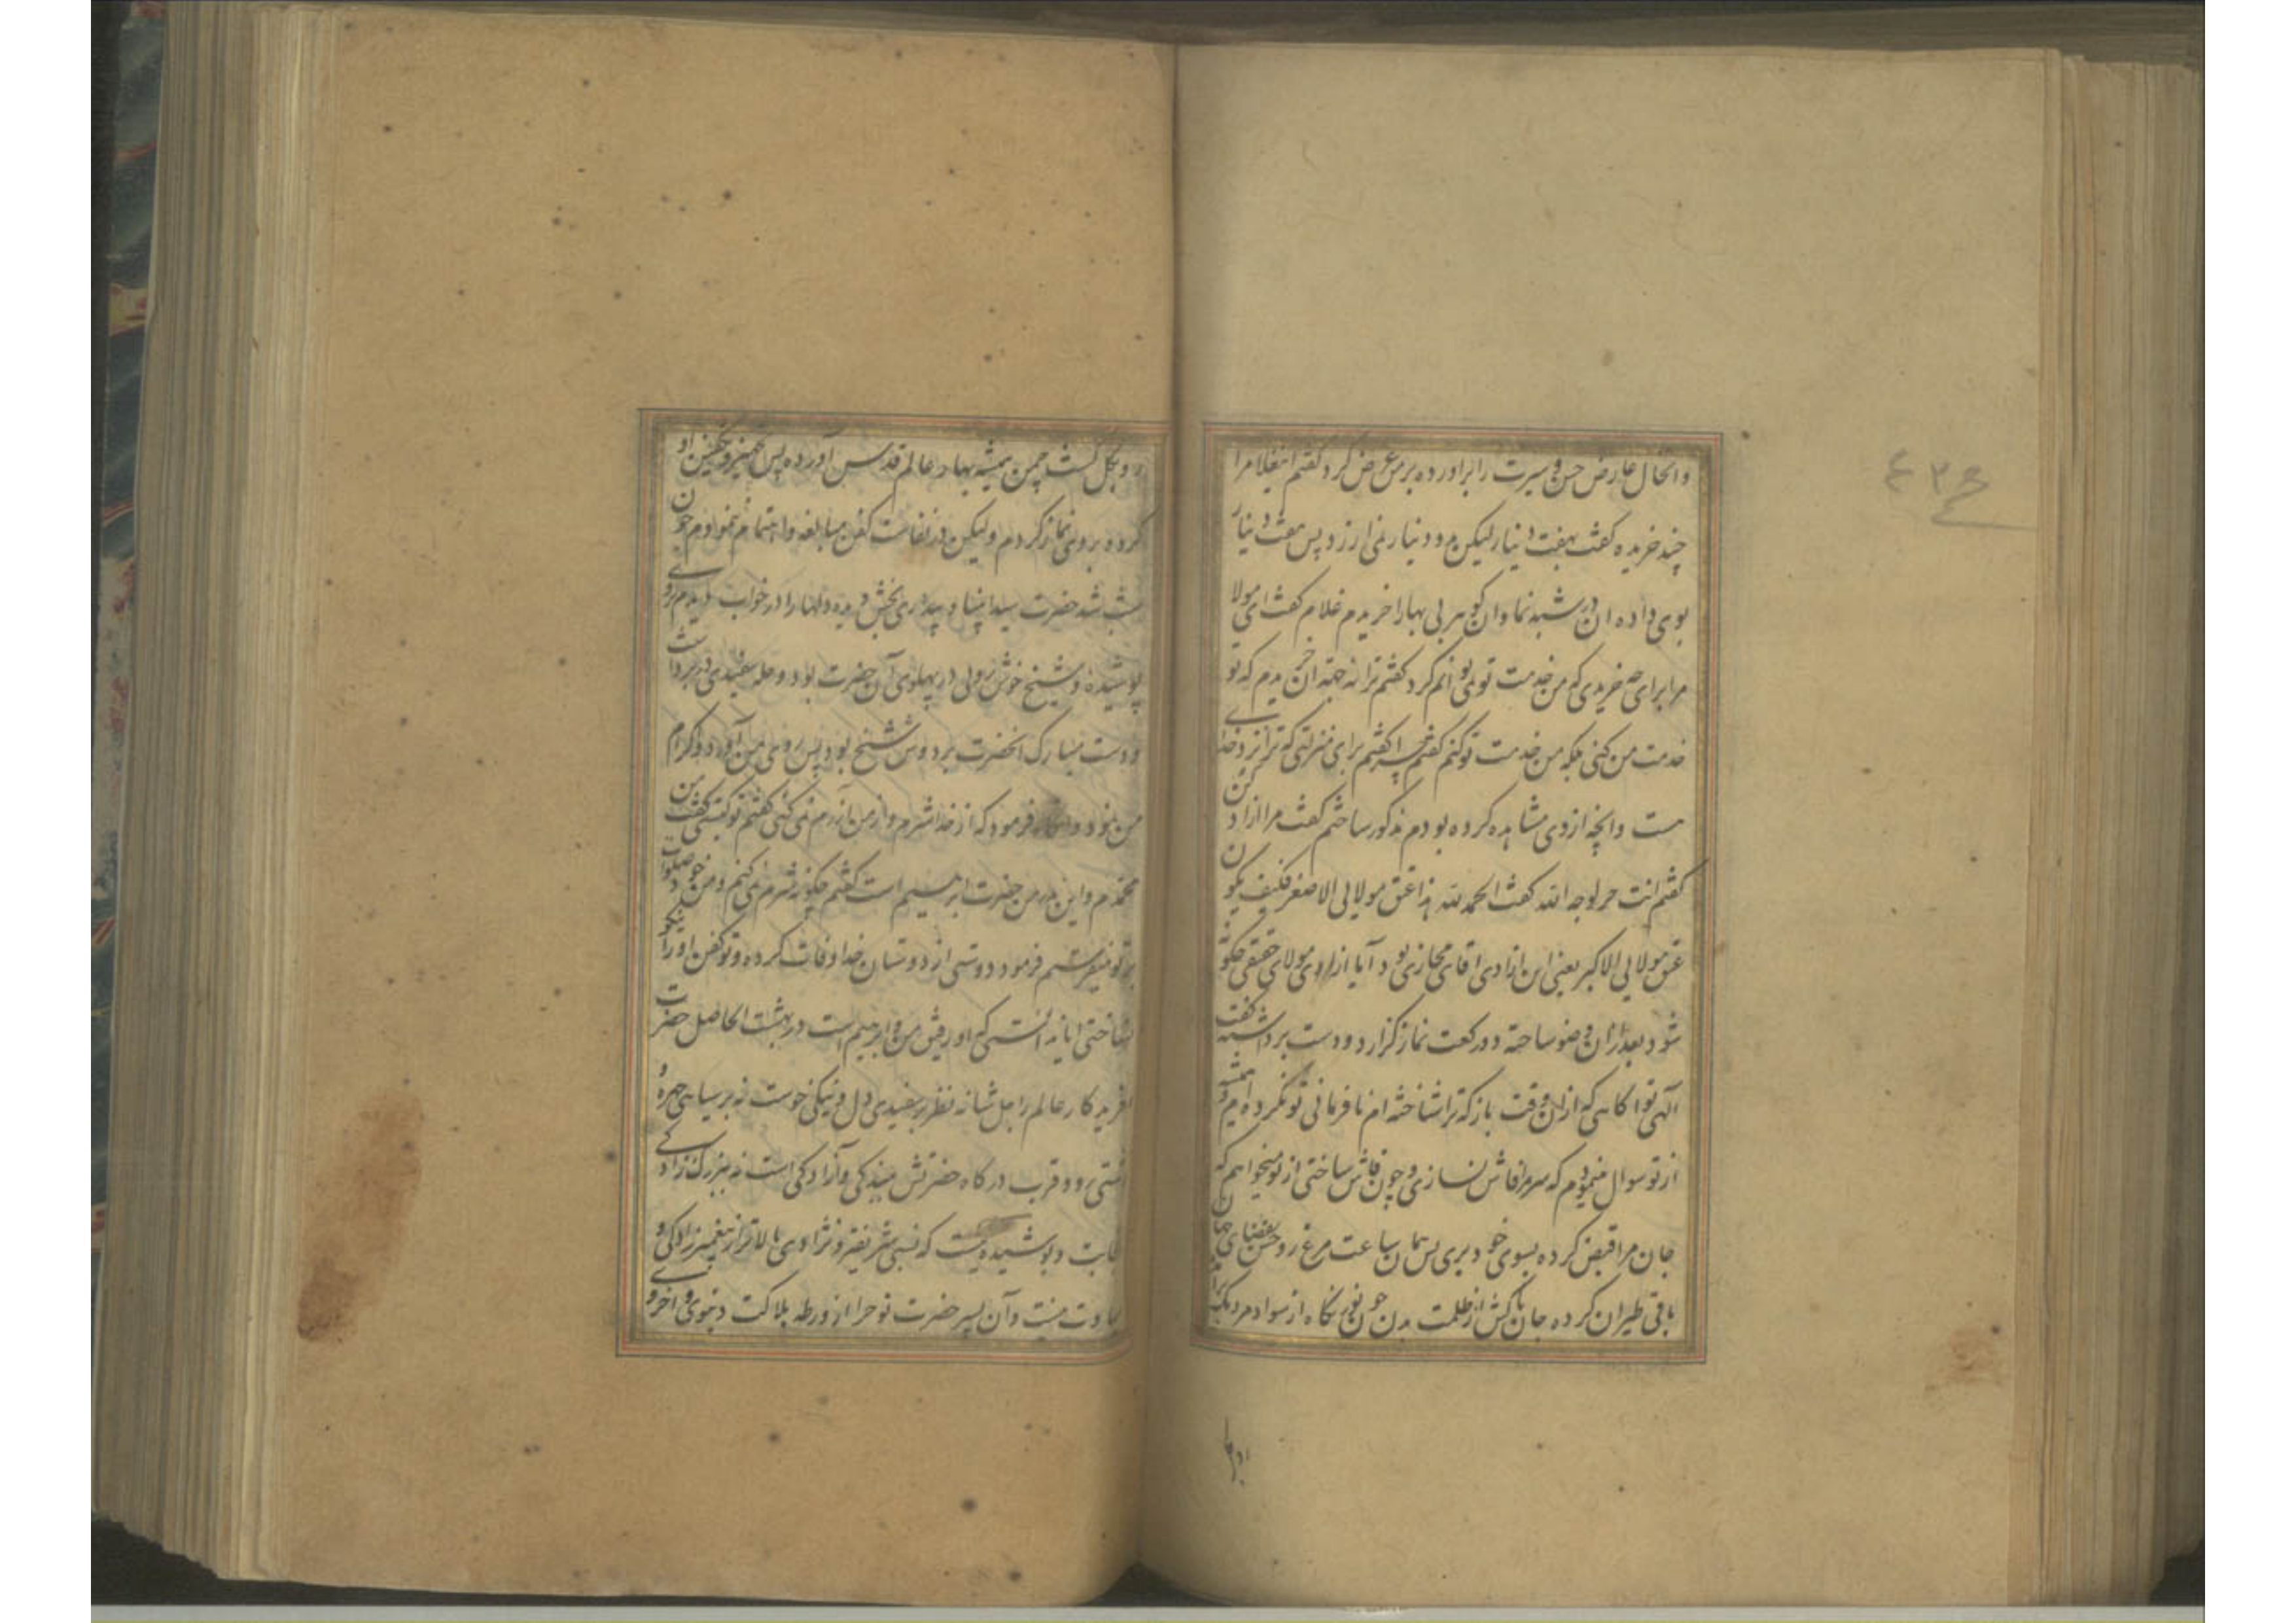 والحال عارض حسن سیرت را برآورده بر من عرض کرد گفتم این غلام را
چند خریده گفت بهفت دینار لیکن دو دینار نمی ارزد پس هفت دینار
بوی داده ان در شبه نما وان گوهر بی بها را خریدم غلام گفت ای مولا
مرا برای چه خریدی که من خدمت تو نمی توانم کرد گفتم ترا نه جهة ان خریدم که تو
خدمت من کنی بلکه من خدمت تو کنم گفت چرا گفتم برای منزلتی که ترا نزد خدای
هست وانچه ازوی مشاهده کرده بودم مذکور ساختم گفت مرا ازاد کن
گفتم انت حر لوجه الله گفت الحمد لله هذا عتق مولایی الاصغر فکیف یکون
عتق مولایی الاکبر یعنی این ازادی اقای مجازی بود آیا ازادی مولای حقیقی چگونه
شود بعد ازان وضو ساخته دو رکعت نماز گزارد و دست برداشته گفت
الهی تو اکاهی که ازان وقت باز که ترا شناخته ام نافرمانی تو نکرده ام و همیشه
از تو سوال مینمودم که سر مرا فاش نسازی و چون فاش ساختی از تو میخواهم که
جان مرا قبض کرده بسوی خود بری پس همان ساعت مرغ روحش بفضای جهان
باقی طیران کرده جان پاکش از ظلمت بدن چون نور نگاه از سواد مردمک برآمد
رو بگل گشت چمن همیشه بهار عالم قدس آورده پس تجهیز و تکفین او
کرده بروی نماز کردم ولیکن در نفاست کفن مبالغه و اهتمام ننموادم چون
شب شد حضرت سید انبیا و بیداری بخش دیده دلها را در خواب دیدم روی
پوشیده و شیخ خوش رویی در پهلوی آن حضرت بود و حله سفیدی در بر داشت
ودست مبارک انحضرت بر دوش شیخ بود پس روی بمن آورد و اکرام
من نمود و فرمود که از خدا شرم و از من آزرم نمی کنی گفتم تو کیستی گفت من
محمدم و این پدر من حضرت ابرهیم است گفتم چگونه شرم نمی کنم و من خود صلوات
بر تو میفرستم فرمود دوستی از دوستان خدا وفات کرده و تو کفن او را نیکو
نساختی ایا ندانستی که او رفیق من و ابرهیم است در بهشت الحاصل حضرت
افریدکار عالم را جل شانه نظر بر سفیدی دل و نیکی خوست نه بر سیاهی چهره و
زشتی رو و قرب درکاه حضرتش ببندکی و آزادکی است نه ببزرک زادکی
ثابت و پوشیده نیست که نسبی شریفتر و نژادی بالاتر از پیغمبر زادکی و
نبوت نیست وآن پسر حضرت نوح را از ورطه هلاکت دنیوی و اخروی